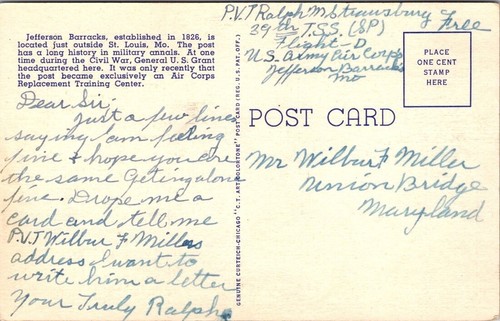 Jefferson Barracks, established in 1826, is
located just outside St. Louis, Mo. The post
has a long history in military annals. At one
time during the Civil War, General U. S. Grant
headquartered here. It was only recently that
the post became exclusively an Air Corps
Replacement Training Center.
Dear Sir,
Just a few lines
saying I am feeling
fine & hope you are
the same Geting along
fine. Drope me a
card and tell me
P.V.T Wilbur F Millers
address I want to
write him a letter
Your Truly Ralph
GENUINE CURTEICH-CHICAGO "C.T. ART-COLORTONE" POST CARD (REG. U.S. PAT. OFF.)
P.V.T Ralph M Strawsburg
39th T.S.S. (SP)
Flight-D
U.S. Army Air Corps
Jefferson Barracks
Mo
Free
PLACE
ONE CENT
STAMP
HERE
POST CARD
Mr Wilbur F Miller
Union Bridge
Maryland